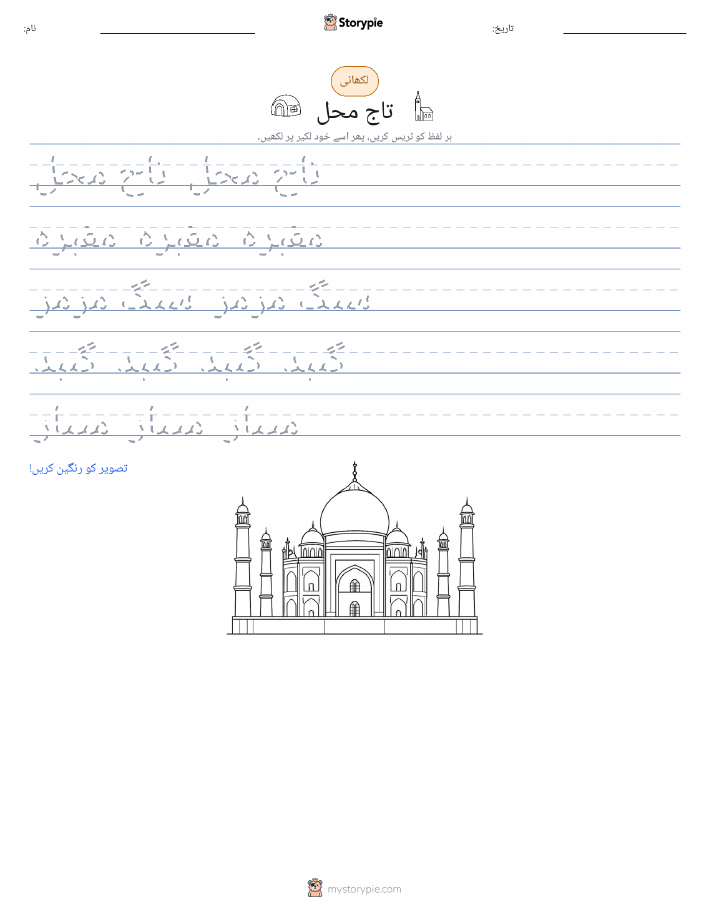 Storypie
نام: تاریخ:
لکھائی
تاج محل
ہر لفظ کو ٹریس کریں، پھر اسے خود لکیر پر لکھیں۔
تاج محل تاج محل
مقبرہ مقبرہ مقبرہ
سنگ مرمر سنگ مرمر
گنبد گنبد گنبد گنبد
مینار مینار مینار
تصویر کو رنگین کریں!
mystorypie.com